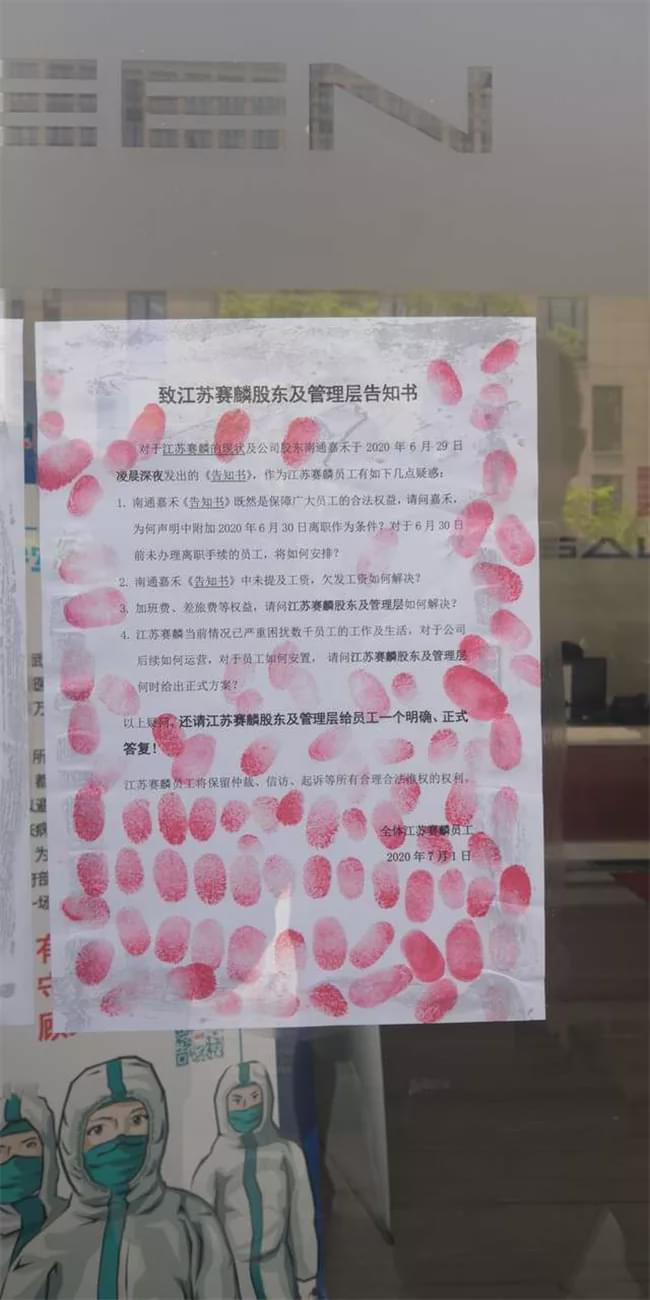 EEN
致江苏赛麟股东及管理层告知书
对于江苏赛麟的现状及公司股东南通嘉禾于 2020 年 6 月 29 日
凌晨深夜发出的《告知书》，作为江苏赛麟员工有如下几点疑惑：
1. 南通嘉禾《告知书》既然是保障广大员工的合法权益，请问嘉禾，
为何声明中附加 2020 年 6 月 30 日离职作为条件？对于 6 月 30 日
前未办理离职手续的员工，将如何安排？
2. 南通嘉禾《告知书》中未提及工资，欠发工资如何解决？
3. 加班费、差旅费等权益，请问江苏赛麟股东及管理层如何解决？
4. 江苏赛麟当前情况已严重困扰数千员工的工作及生活，对于公司
后续如何运营，对于员工如何安置， 请问江苏赛麟股东及管理层
何时给出正式方案？
以上疑问，还请江苏赛麟股东及管理层给员工一个明确、正式
答复！
江苏赛麟员工将保留仲裁、信访、起诉等所有合理合法维权的权利。
全体江苏赛麟员工
2020 年 7 月 1 日
有
守
顾